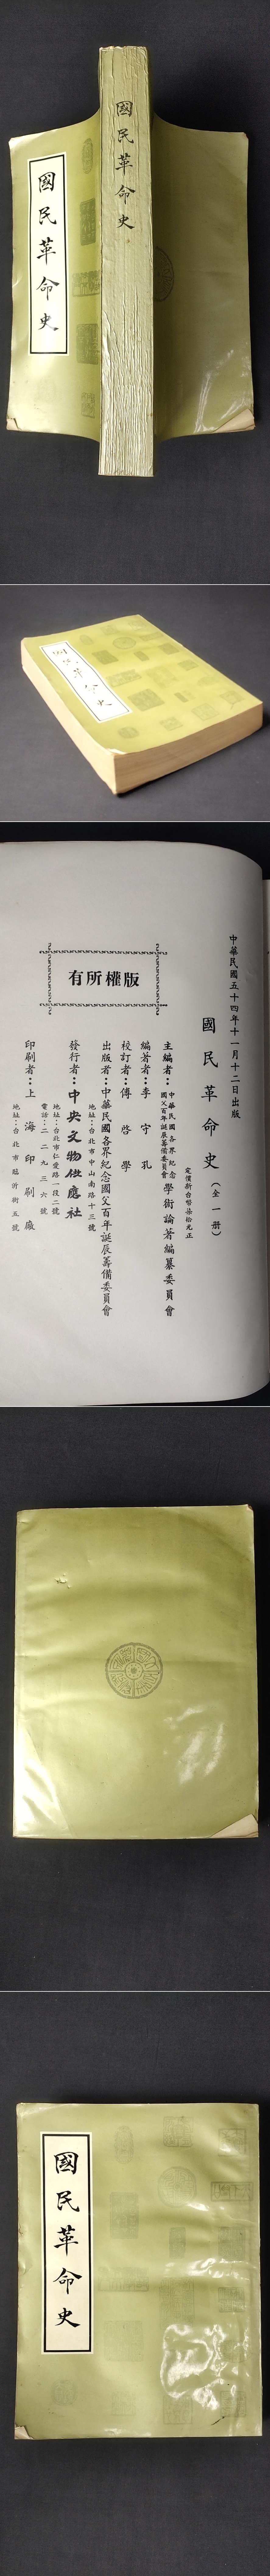 國民革命史
國民革命史
國民革命史
中華民國五十四年十一月十二日出版
國民革命史（全一册）
定價新台幣柒拾元正
主編者：中華民國各界紀念國父百年誕辰籌備委員會學術論著編纂委員會
編著者：李守孔
校訂者：傅啓學
出版者：中華民國各界紀念國父百年誕辰籌備委員會
地址：台北市中山南路十三號
發行者：中央文物供應社
地址：台北市仁愛路一段二號
電話：二二九三六號
印刷者：上海印刷廠
地址：台北市臨沂街五號
有所權版
國民革命史